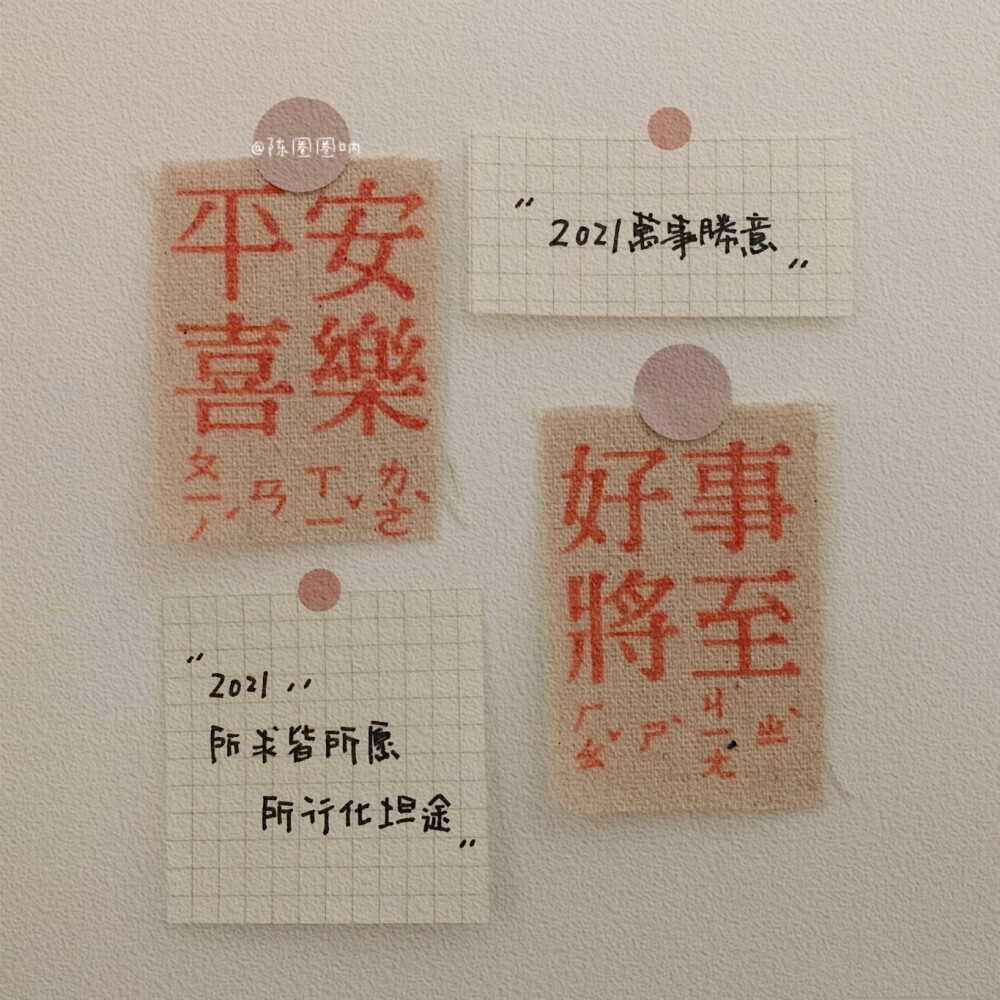 @陈圈圈呐
平安
喜樂
ㄆㄧㄥˊ ㄢ ㄒㄧˇ ㄌㄜˋ
"2021萬事勝意"
好事
將至
ㄏㄠˇ ㄕˋ ㄐㄧㄤ ㄓˋ
"2021,,
所求皆所愿
所行化坦途"